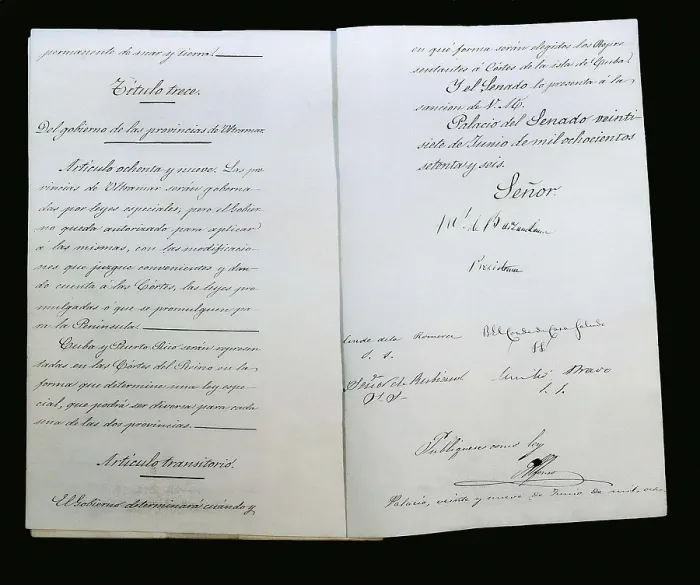 permanente de mar y tierra.
Título trece.
Del gobierno de las provincias de Ultramar.
Artículo ochenta y nueve. Las pro-
vincias de Ultramar serán goberna-
das por leyes especiales; pero el Gobier-
no queda autorizado para aplicar
á las mismas, con las modificacio-
nes que juzgue convenientes y dan-
do cuenta á las Córtes, las leyes pro-
mulgadas ó que se promulguen pa-
ra la Península.
Cuba y Puerto Rico serán represen-
tadas en las Córtes del Reino en la
forma que determine una ley espe-
cial, que podrá ser diversa para cada
una de las dos provincias.
Artículo transitorio.
El Gobierno determinará cuándo y
en que forma serán elegidos los Repre
sentantes á Córtes de la isla de Cuba.
Y el Senado lo presenta á la
sancion de V. M.
Palacio del Senado veinti
siete de Junio de mil ochocientos
setenta y seis.
Señor
Presidente
Conde de la Romera
S. S.
El Conde de Casa Galindo
S. S.
Señor de Rubianes
S. S.
Emilio Bravo
S. S.
Publiquese como ley
Alfonso
Palacio, veinte y nueve de Junio de mil, ocho